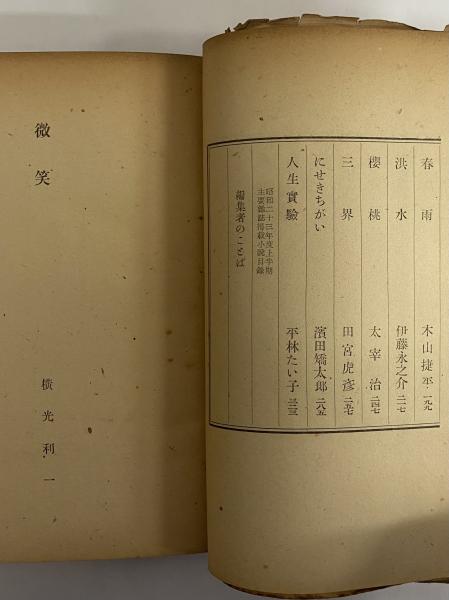 春雨 木山捷平 一九九
洪水 伊藤永之介 二一七
櫻桃 太宰治 二四七
三界 田宮虎彦 二五七
にせきちがい 濱田矯太郎 二八五
人生實驗 平林たい子 三一三
昭和二十三年度上半期
主要雜誌揭載小說目錄
編集者のことば
微笑
横光利一